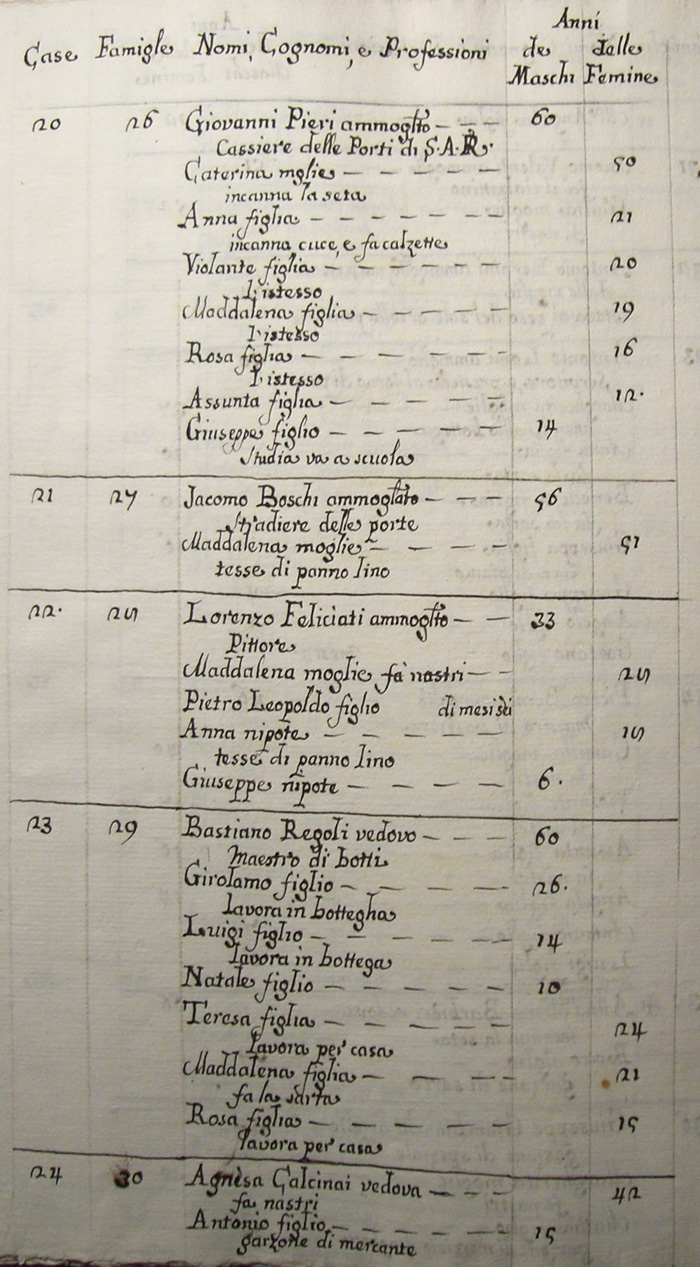 Anni
Case Famiglie Nomi, Cognomi, e Professioni de delle
Maschi Femine
20 26 Giovanni Pieri ammogl̃to — — 60
Cassiere delle Porti di S.A.R.
Caterina mglie — — — — — 50
incanna la seta
Anna figlia — — — — — 21
incanna cuce, e fa calzette
Violante figlia — — — — — 20
l'istesso
Maddalena figlia — — — — 19
l'istesso
Rosa figlia — — — — — 16
l'istesso
Assunta figlia — — — — 12.
Giuseppe figlio — — — — 14
Studia va a scuola
21 27 Jacomo Boschi ammoglato — — 56
Stradiere delle porte
Maddalena moglie — — — 51
tesse di panno lino
22. 28 Lorenzo Feliciati ammogl̃to — — 33
Pittore
Maddalena moglie fà nastri — — 28
Pietro Leopoldo figlio di mesi sei
Anna nipote — — — — — 18
tesse di panno lino
Giuseppe nipote — — — — 6.
23 29 Bastiano Regoli vedovo — — — 60
Maestro di botti
Girolamo figlio — — — — 26.
lavora in bottegha
Luigi figlio — — — — — 14
lavora in bottega
Natale figlio — — — — — 10
Teresa figlia — — — — — 24
lavora per casa
Maddalena figlia — — — — 21
fa la sarta
Rosa figlia — — — — — 15
lavora per casa
24 30 Agnesa Galcinai vedova — — — 42
fa nastri
Antonio figlio — — — — 15
garzone di mercante